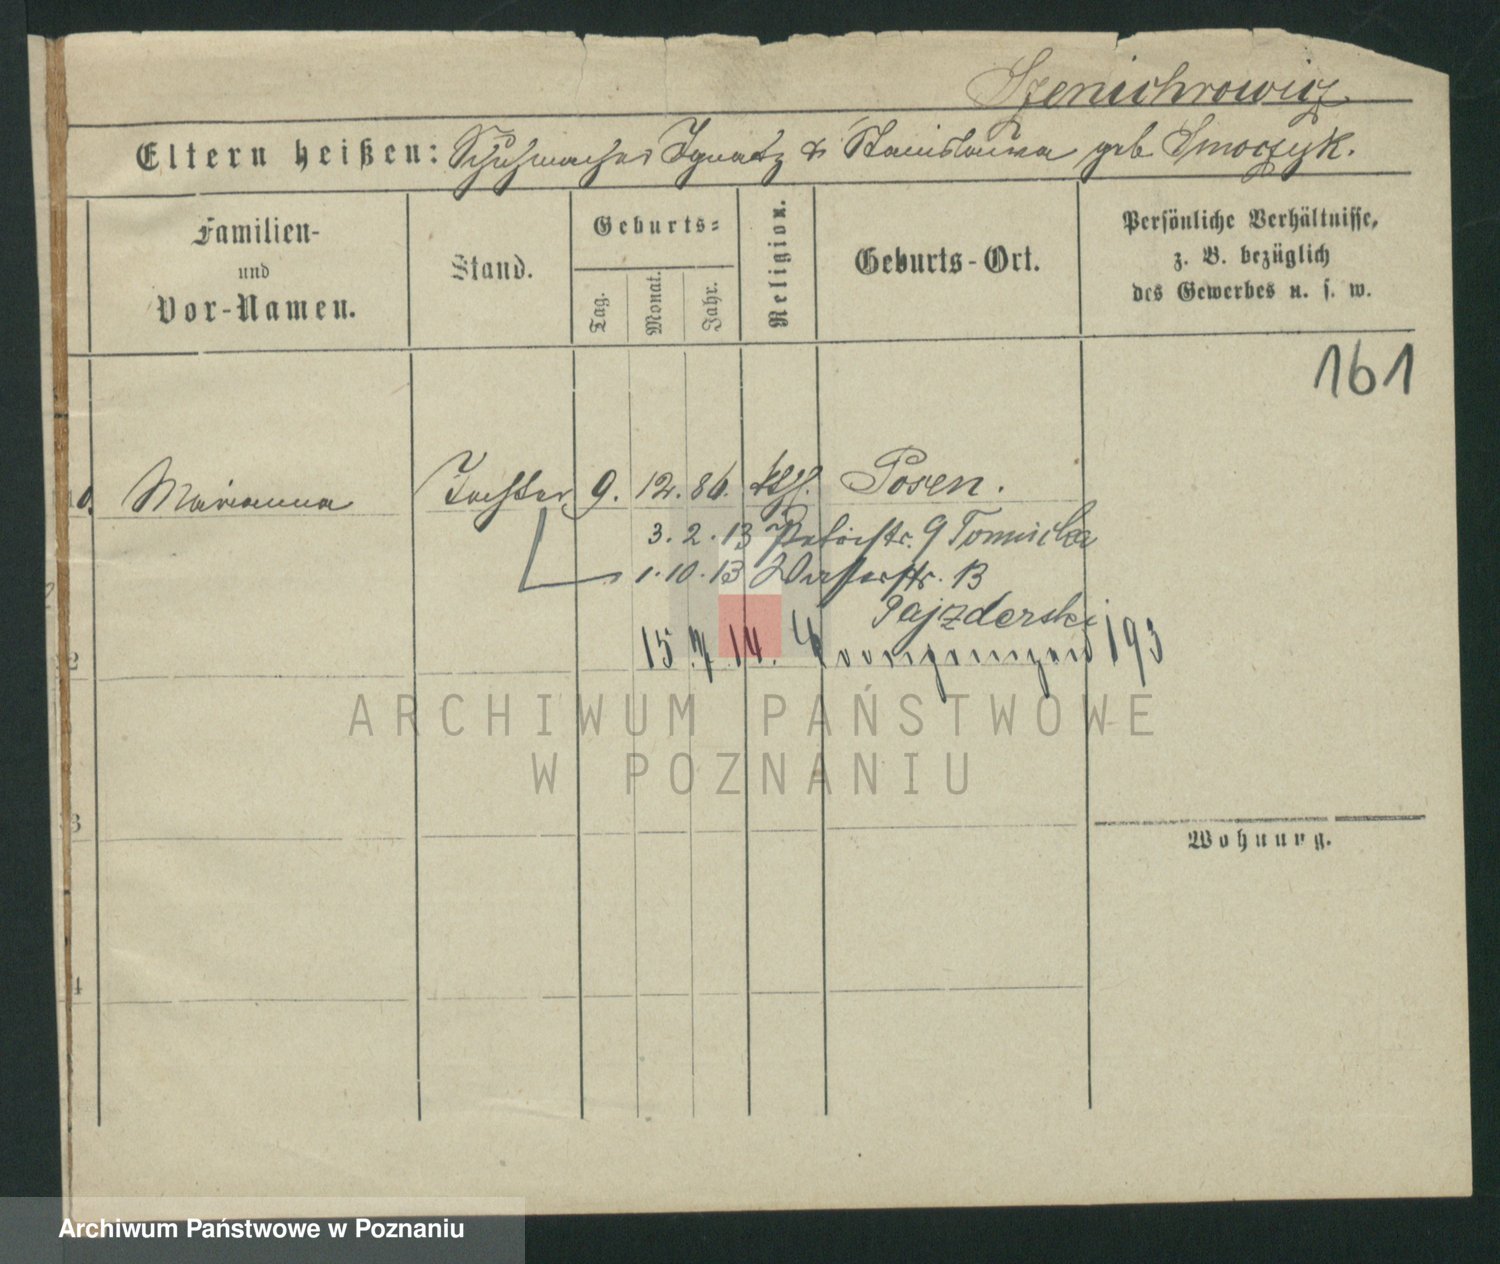 Szenichrowicz
Eltern heißen: Schuhmacher Ignatz & Stanislawa geb Smoczyk.
Familien-
und
Vor-Namen.
Stand.
Geburts-
Tag.
Monat.
Jahr.
Religion.
Geburts-Ort.
Persönliche Verhältnisse,
z. B. bezüglich
des Gewerbes u. s. w.
161
0. Marianna Tochter 9. 12. 86. kth. Posen.
3. 2. 13 9 Tomicka
1. 10. 13 13
Pajzderski
15 7 14. 193
2
3
Wohnung.
4
ARCHIWUM PAŃSTWOWE
W POZNANIU
Archiwum Państwowe w Poznaniu